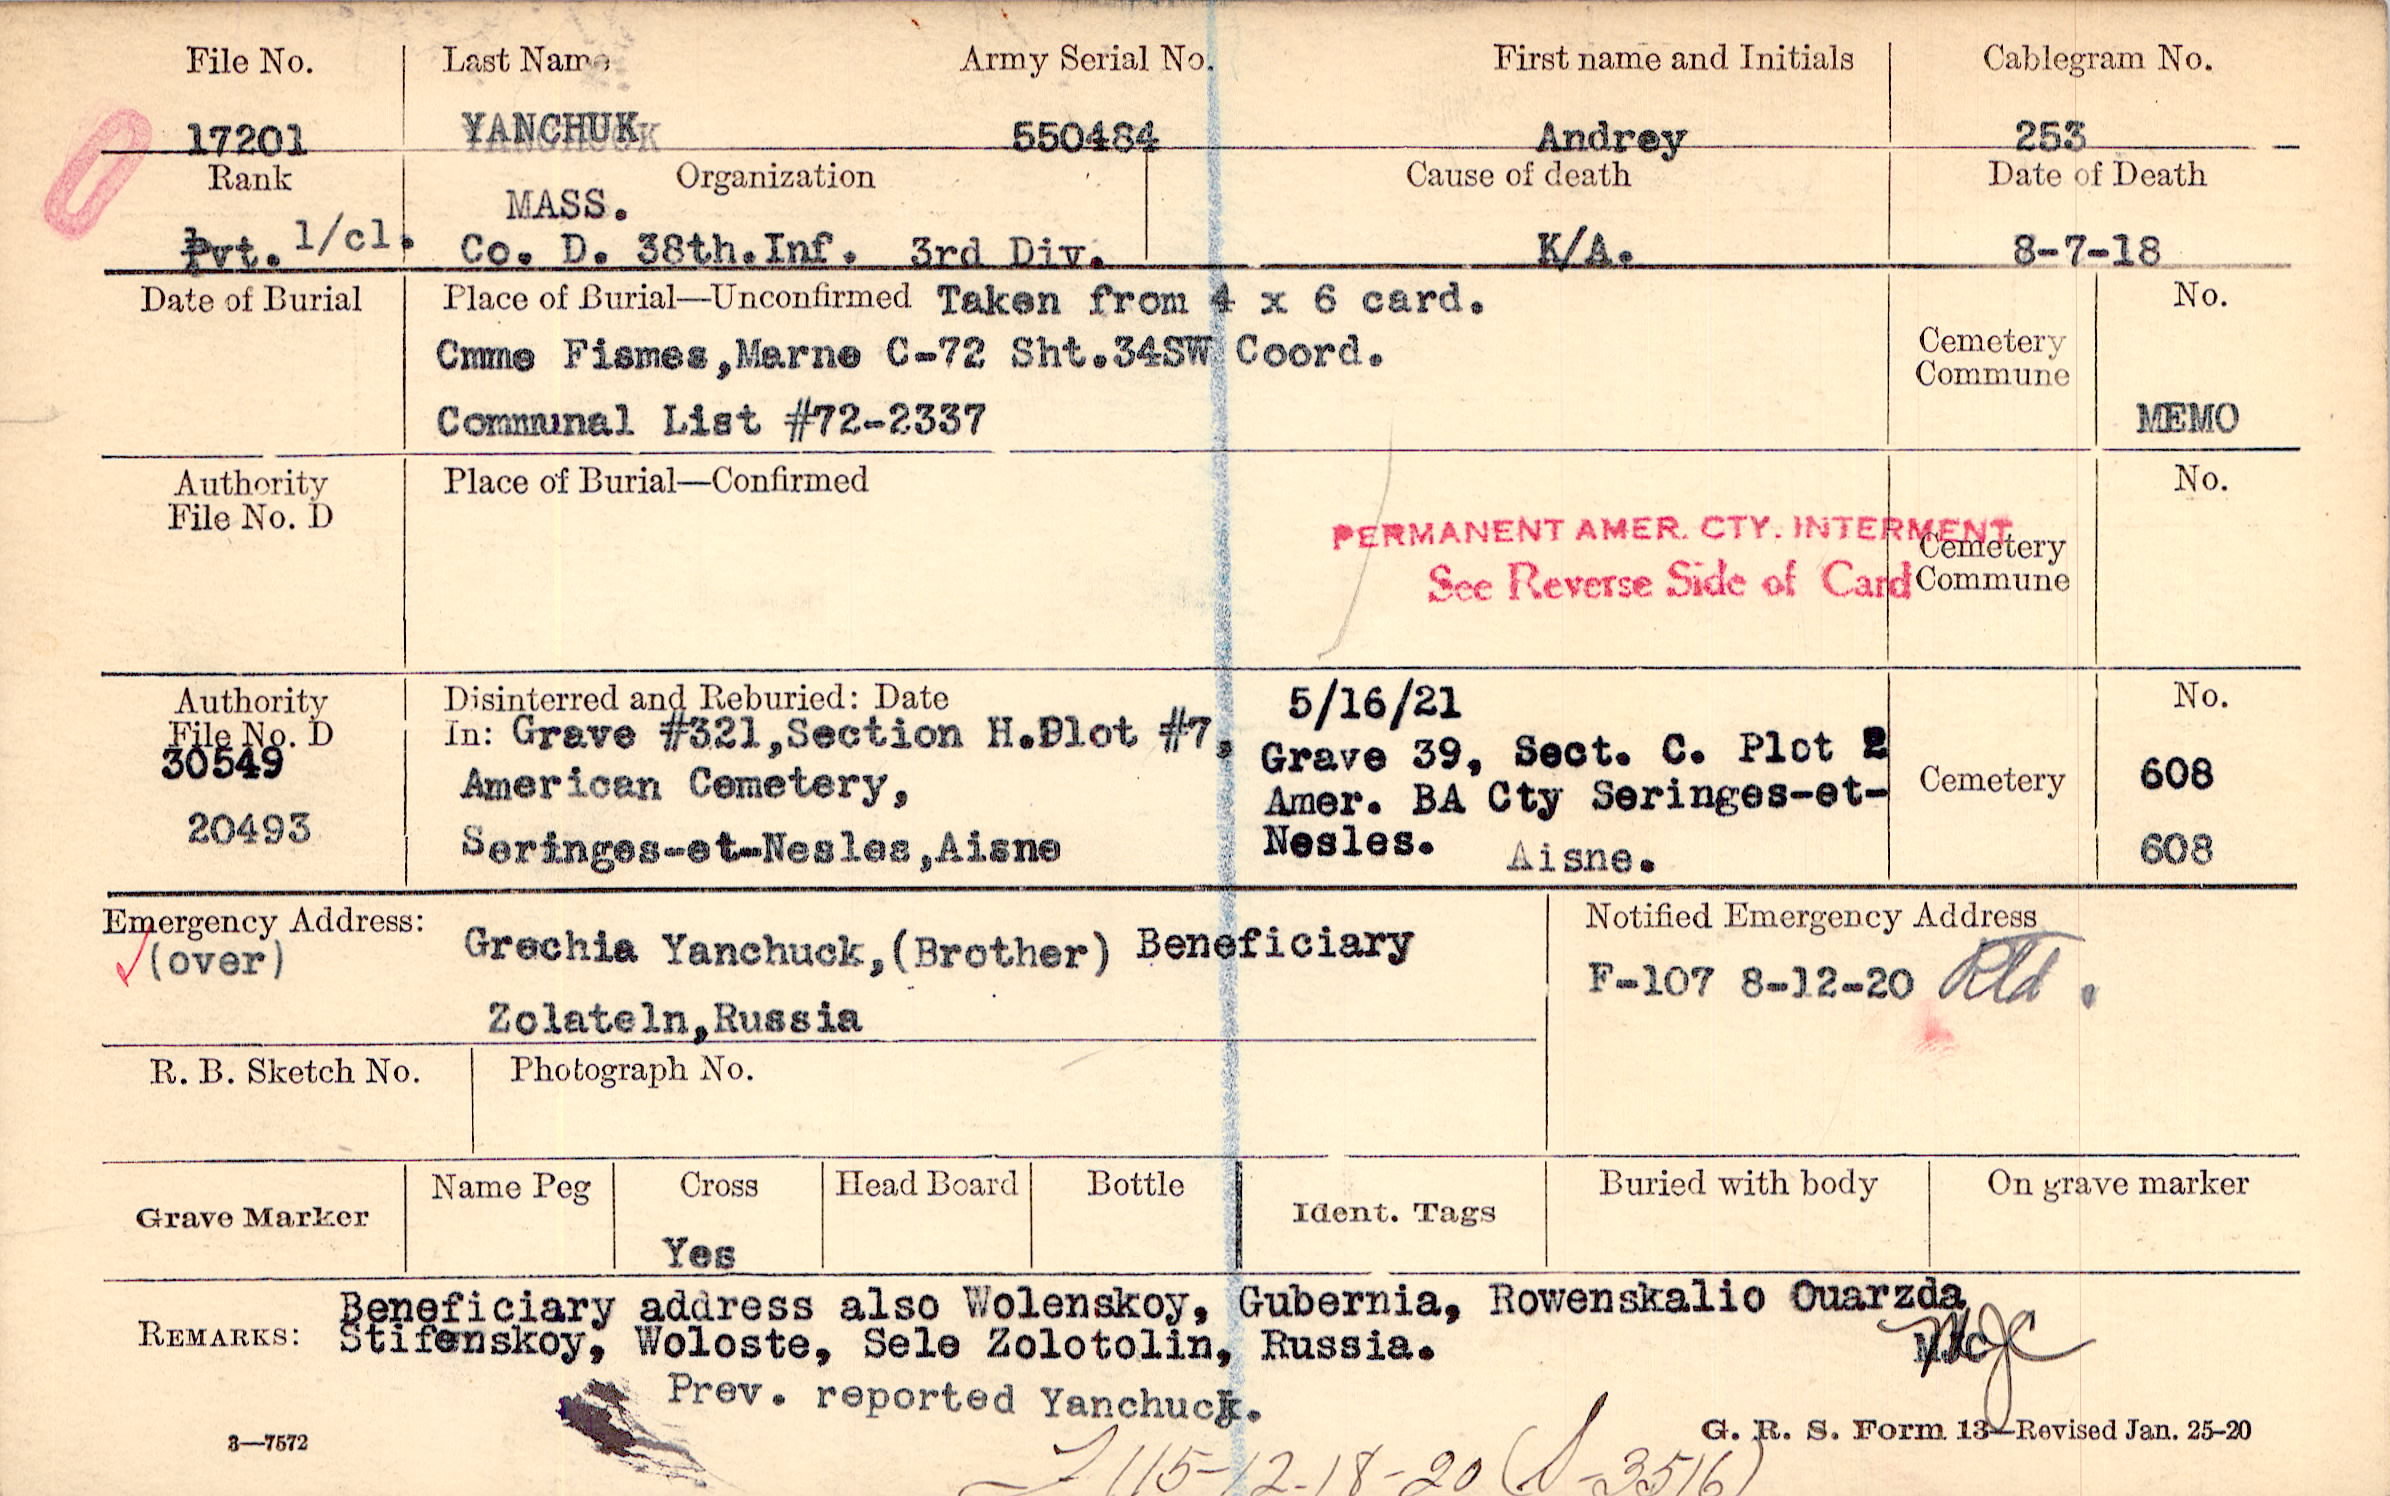 File No. Last Name Army Serial No. First name and Initials Cablegram No.
17201 YANCHUK 550484 Andrey 253
Rank Organization Cause of death Date of Death
MASS.
Pvt. 1/cl. Co. D. 38th.Inf. 3rd Div. K/A. 8-7-18
Date of Burial Place of Burial—Unconfirmed Taken from 4 x 6 card. No.
Cmme Fismes,Marne C-72 Sht.34SW Coord. Cemetery
Commune
Communal List #72-2337 MEMO
Authority Place of Burial—Confirmed No.
File No. D
PERMANENT AMER. CTY. INTERMENT
Cemetery
See Reverse Side of Card Commune
Authority Disinterred and Reburied: Date 5/16/21 No.
File No. D In: Grave #321,Section H.Plot #7, Grave 39, Sect. C. Plot 2
30549 American Cemetery, Amer. BA Cty Seringes-et- Cemetery 608
20493 Seringes-et-Nesles,Aisne Nesles. Aisne. 608
Emergency Address: Notified Emergency Address
(over) Grechia Yanchuck,(Brother) Beneficiary F-107 8-12-20
Zolateln,Russia
R. B. Sketch No. Photograph No.
Grave Marker Name Peg Cross Head Board Bottle Ident. Tags Buried with body On grave marker
Yes
Beneficiary address also Wolenskoy, Gubernia, Rowenskalio Ouarzda
REMARKS: Stifenskoy, Woloste, Sele Zolotolin, Russia. MJC
Prev. reported Yanchuck.
3—7572 G. R. S. Form 13—Revised Jan. 25-20
115-12-18-20 (S-3516)